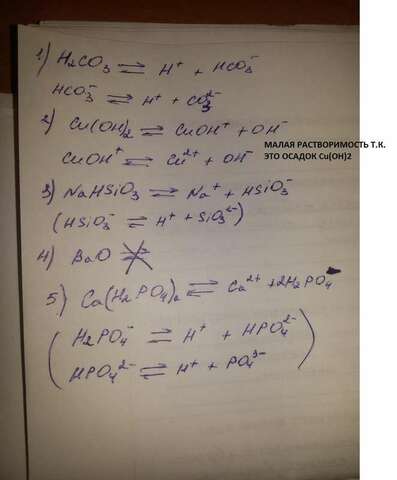 1) H₂CO₃ ⇌ H⁺ + HCO₃⁻
HCO₃⁻ ⇌ H⁺ + CO₃²⁻
2) Cu(OH)₂ ⇌ CuOH⁺ + OH⁻
CuOH⁺ ⇌ Cu²⁺ + OH⁻
МАЛАЯ РАСТВОРИМОСТЬ Т.К.
ЭТО ОСАДОК Cu(OH)2
3) NaHSiO₃ ⇌ Na⁺ + HSiO₃⁻
(HSiO₃⁻ ⇌ H⁺ + SiO₃²⁻)
4) BaO ⇌
5) Ca(H₂PO₄)₂ ⇌ Ca²⁺ + 2H₂PO₄⁻
(H₂PO₄⁻ ⇌ H⁺ + HPO₄²⁻
HPO₄²⁻ ⇌ H⁺ + PO₄³⁻)